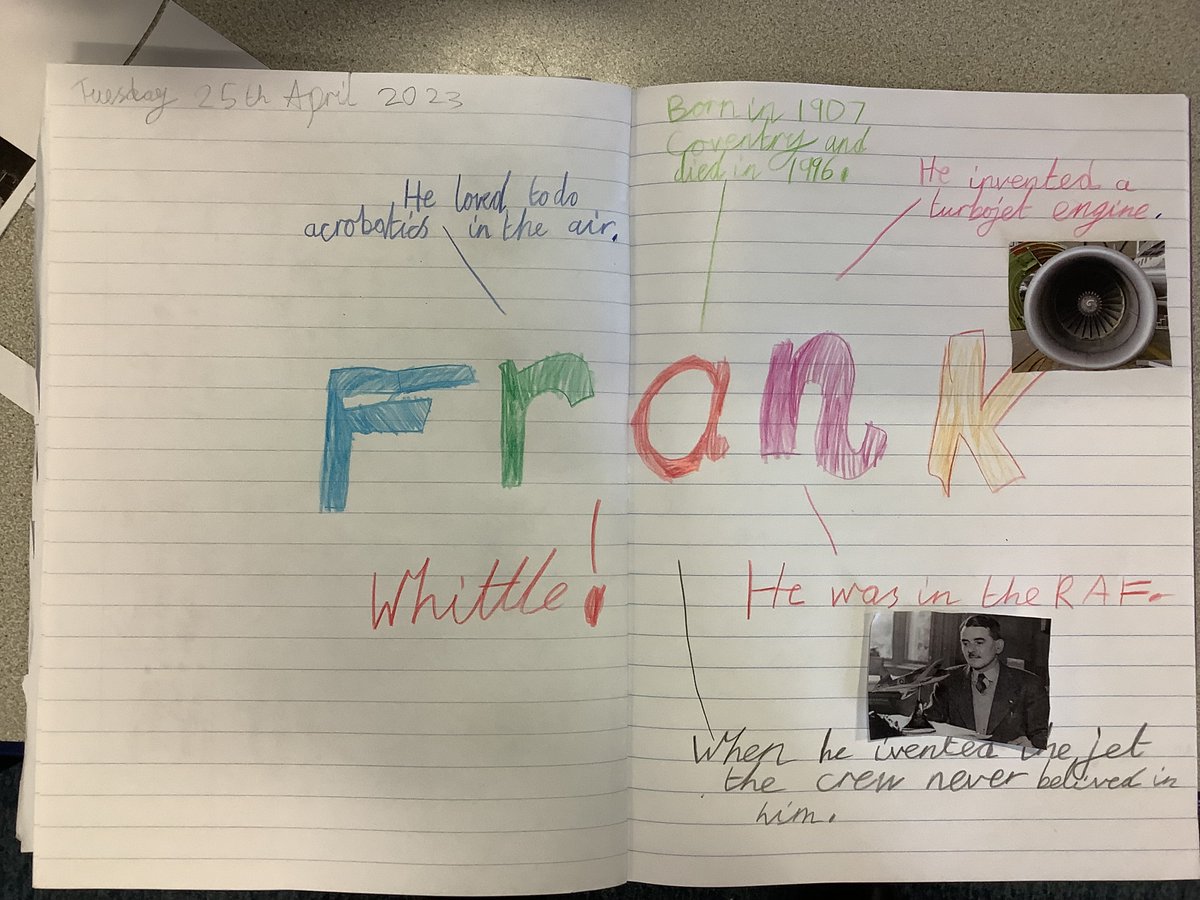 Tuesday 25th April 2023
He loved to do
acrobatics in the air.
Born in 1907
Coventry and
died in 1996.
He invented a
turbojet engine.
Frank
Whittle!
He was in the RAF.
When he ivented the jet
the crew never belived in
him.